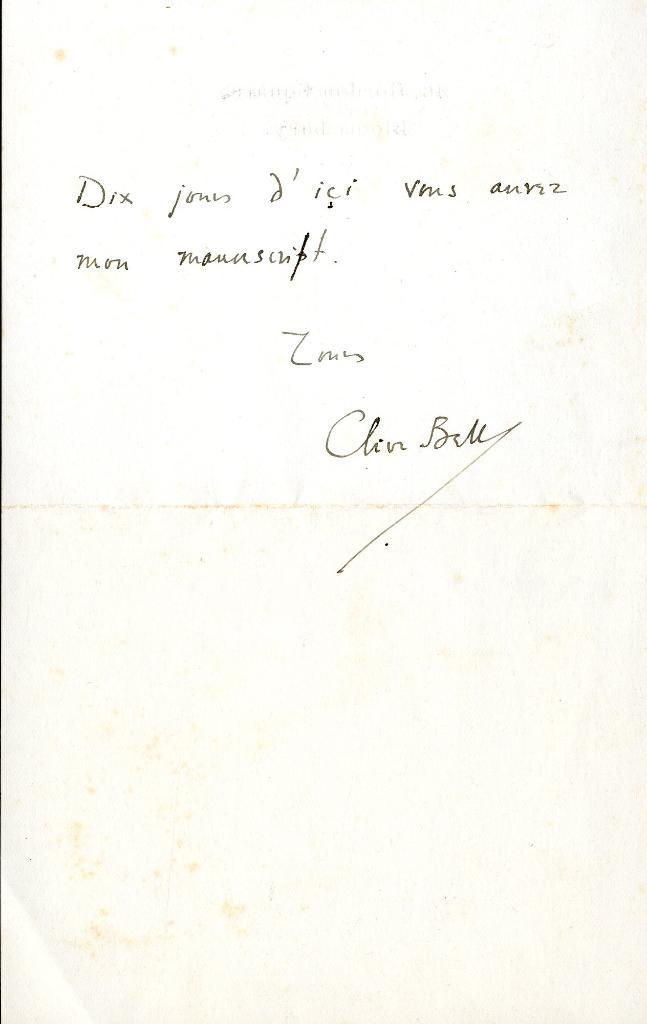 Dix jours d'içi vous aurez
mon manuscript.
Yours
Clive Bell